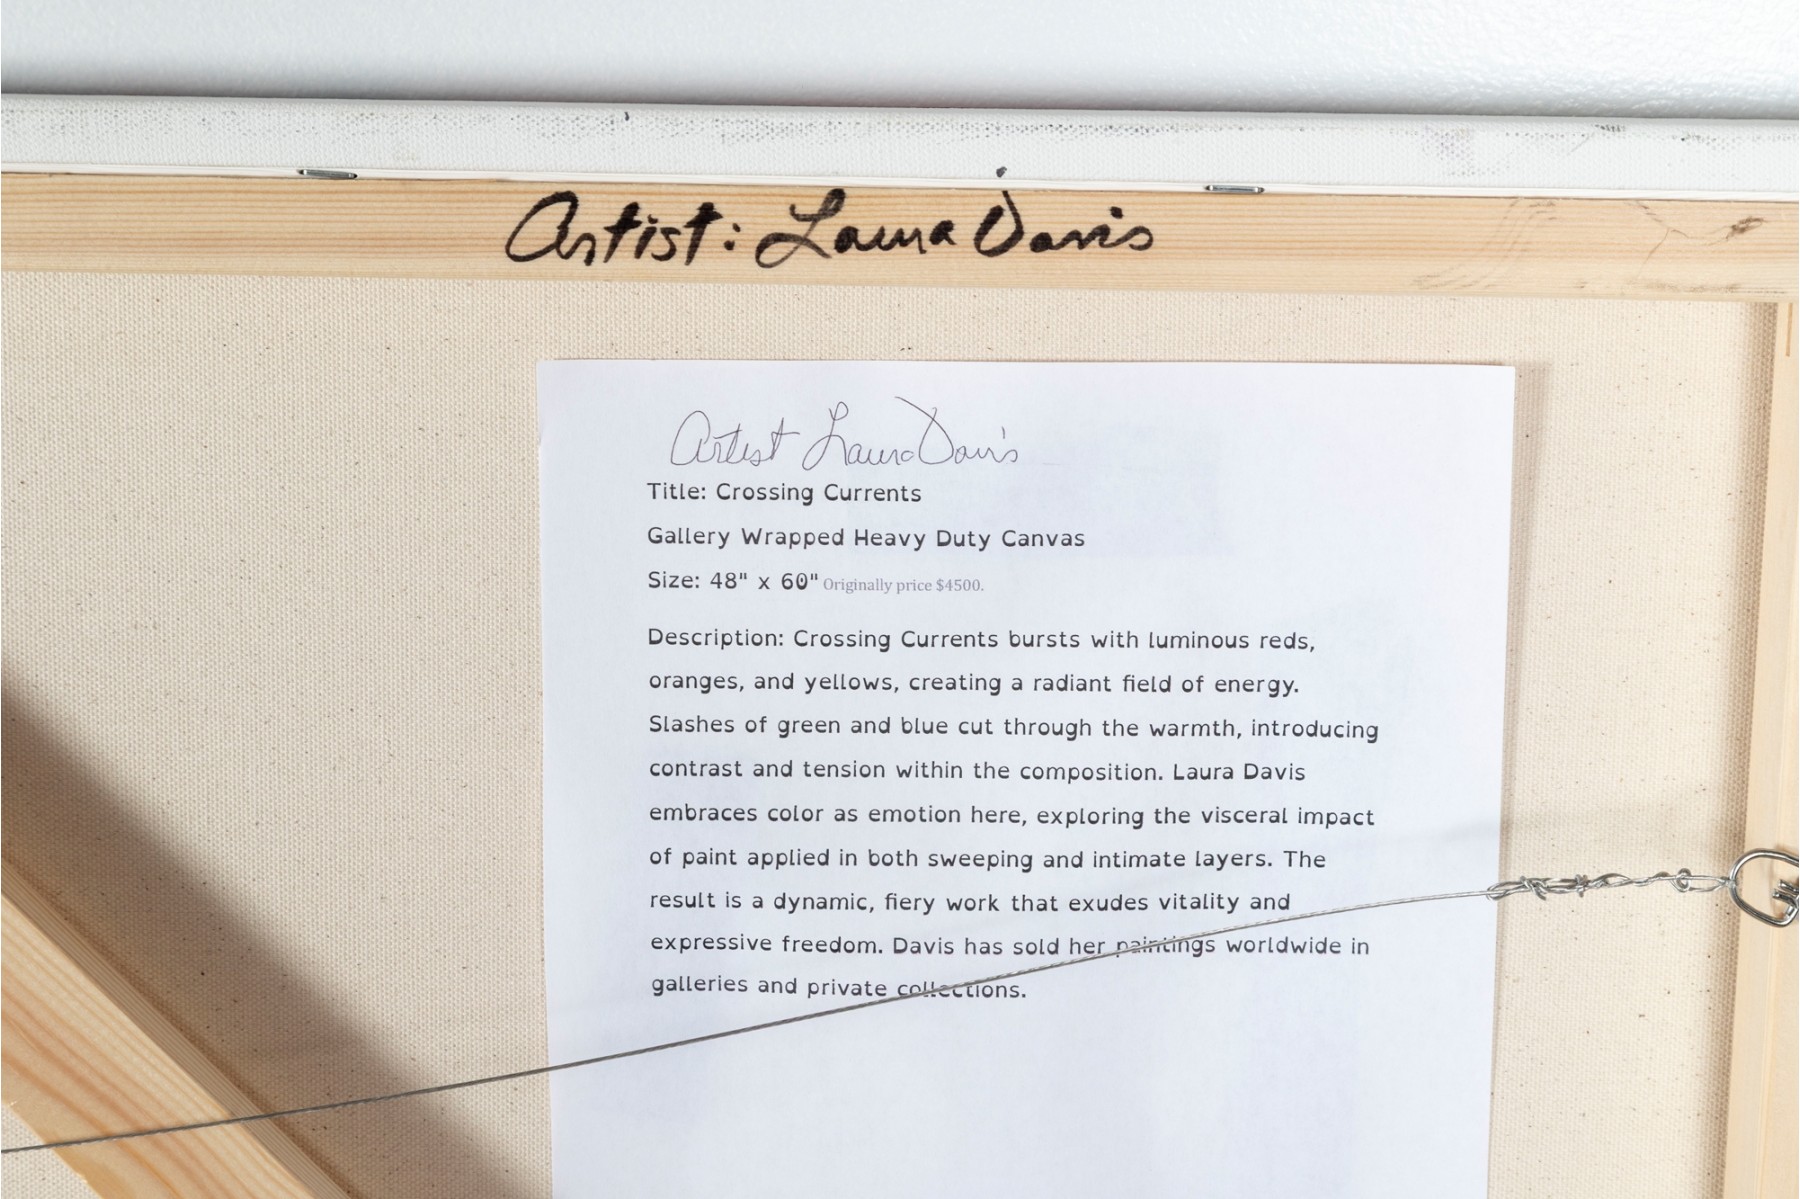 Artist: Laura Davis
Artist Laura Davis
Title: Crossing Currents
Gallery Wrapped Heavy Duty Canvas
Size: 48" x 60" Originally price $4500.
Description: Crossing Currents bursts with luminous reds,
oranges, and yellows, creating a radiant field of energy.
Slashes of green and blue cut through the warmth, introducing
contrast and tension within the composition. Laura Davis
embraces color as emotion here, exploring the visceral impact
of paint applied in both sweeping and intimate layers. The
result is a dynamic, fiery work that exudes vitality and
expressive freedom. Davis has sold her paintings worldwide in
galleries and private collections.